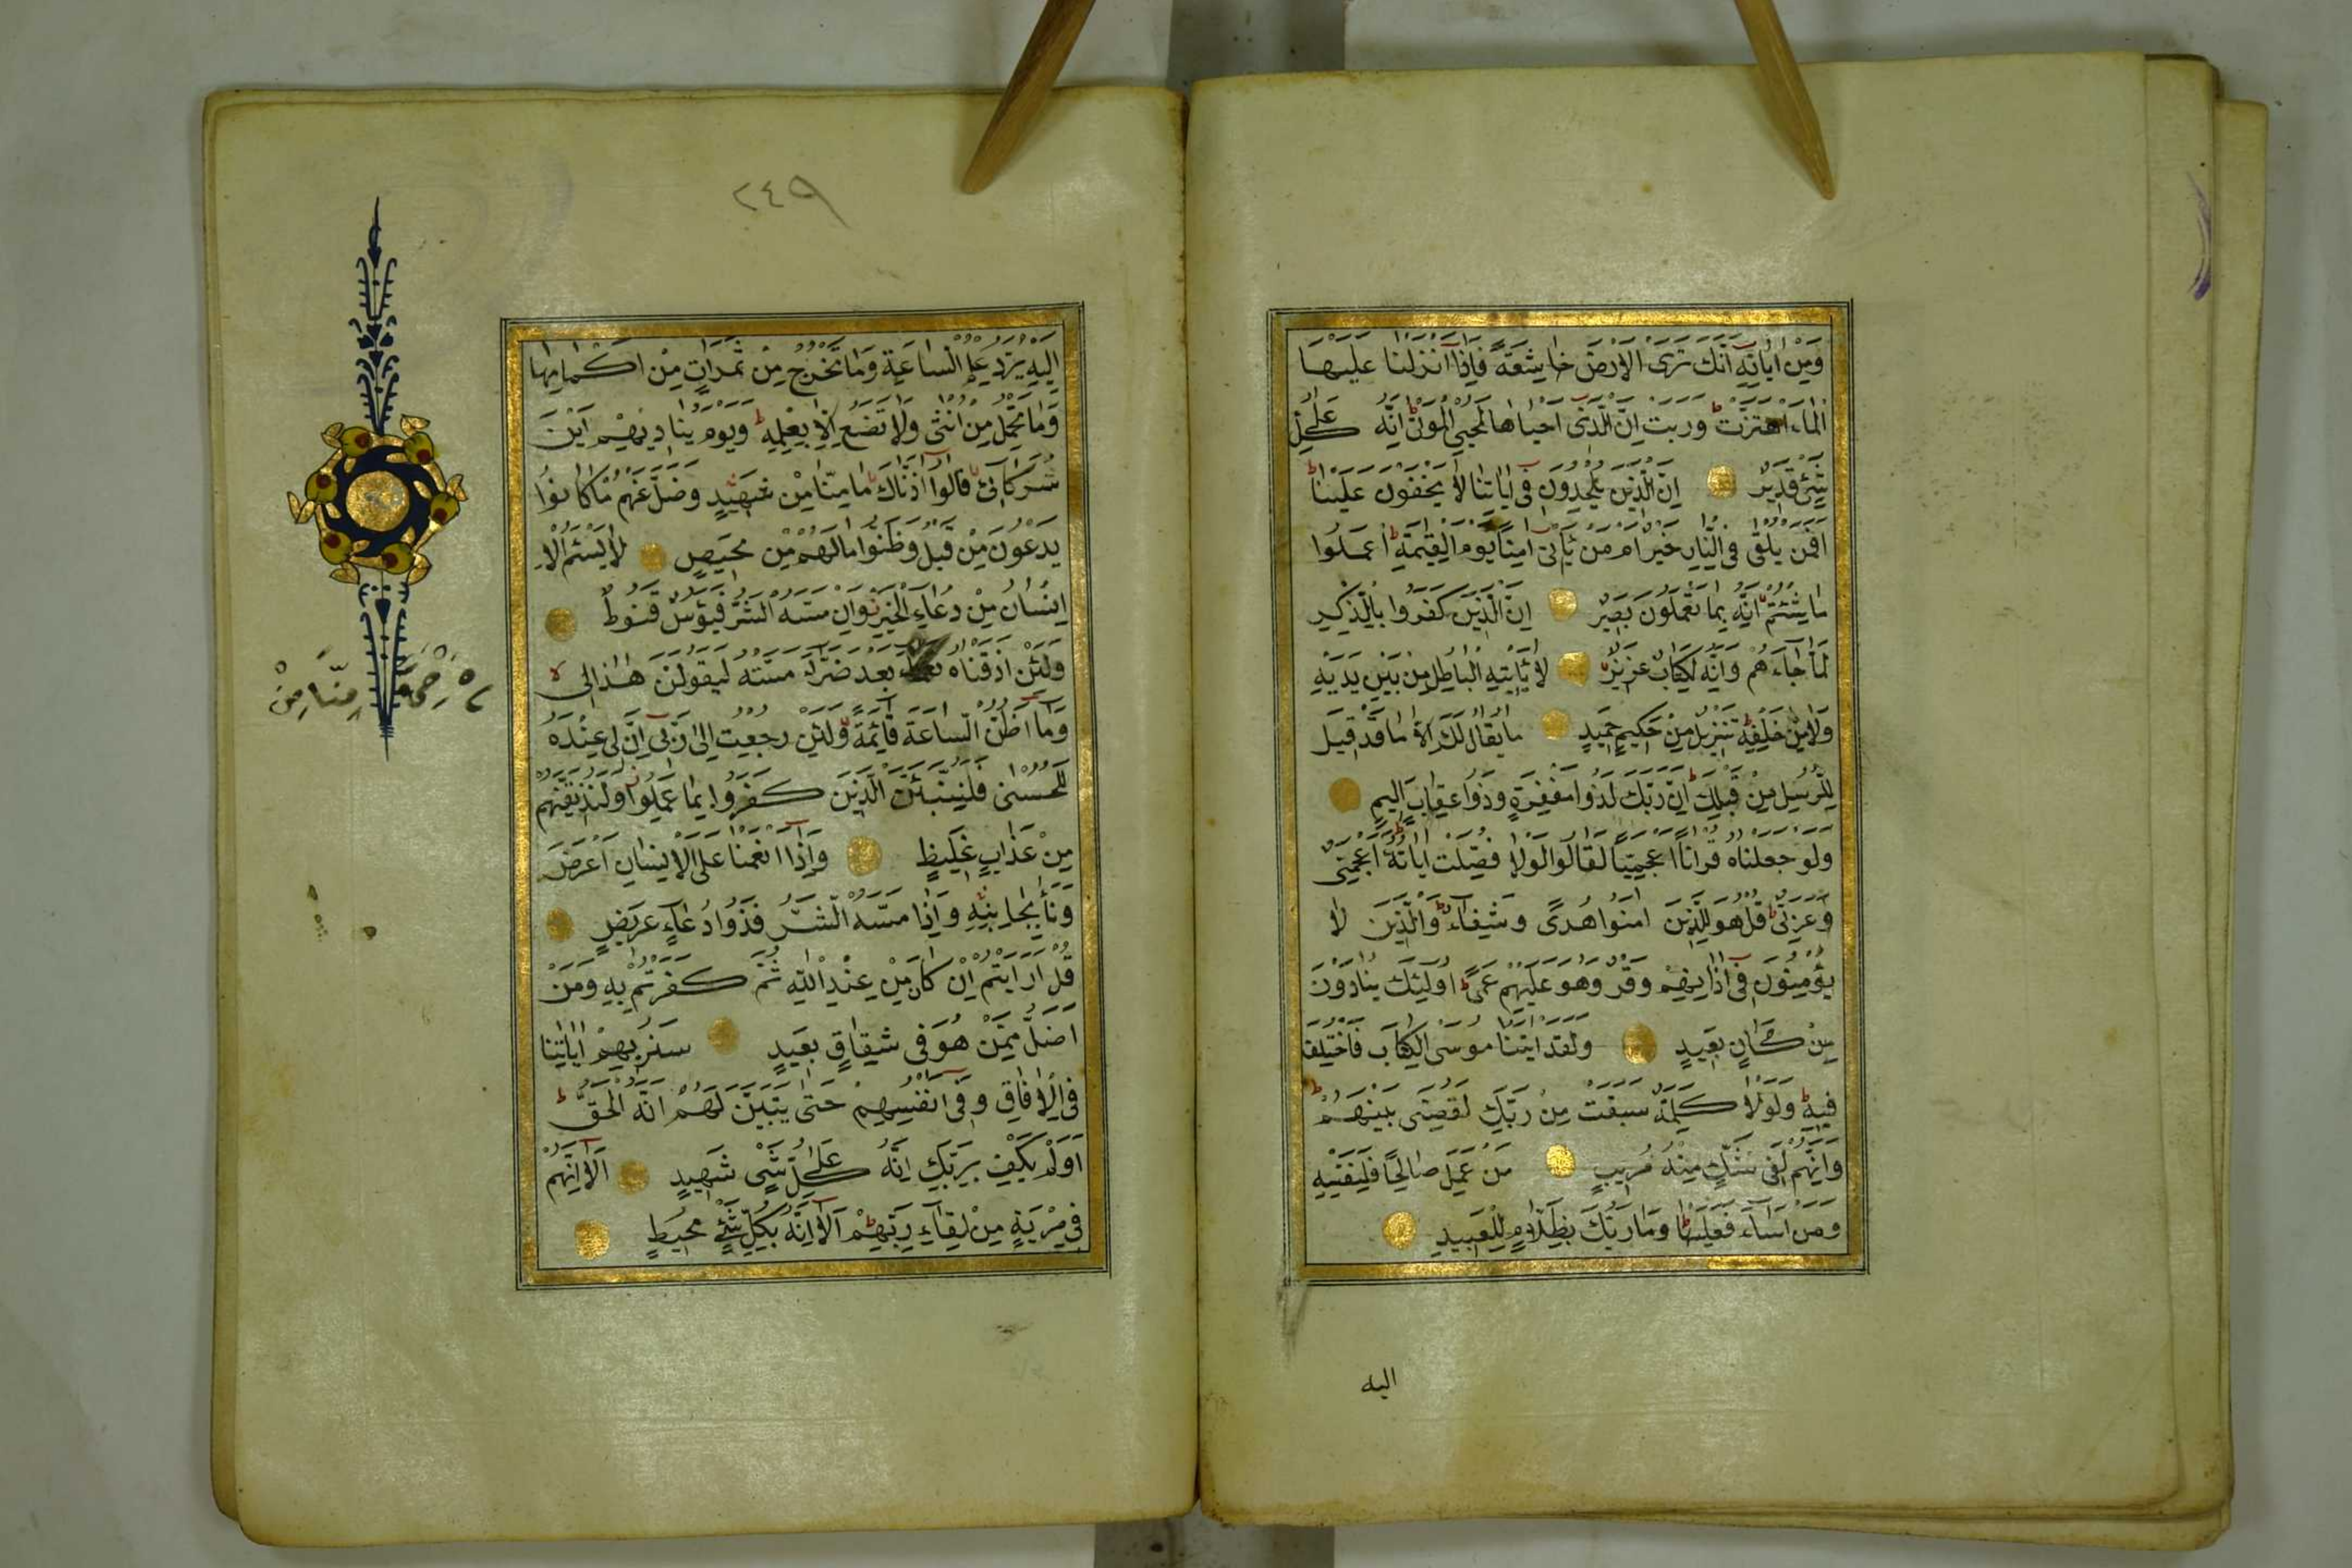 وَمِنْ اٰيَاتِهٖٓ اَنَّكَ تَرَى الْاَرْضَ خَاشِعَةً فَاِذَٓا اَنْزَلْنَا عَلَيْهَا
الْمَٓاءَ اهْتَزَّتْ وَرَبَتْ اِنَّ الَّذٖٓى اَحْيَاهَا لَمُحْيِى الْمَوْتٰى اِنَّهُ عَلٰى كُلِّ
شَيْءٍ قَدٖيرٌ اِنَّ الَّذٖينَ يُلْحِدُونَ فٖٓى اٰيَاتِنَا لَا يَخْفَوْنَ عَلَيْنَا
اَفَمَنْ يُلْقٰى فِى النَّارِ خَيْرٌ اَمْ مَنْ يَأْتٖٓى اٰمِنًا يَوْمَ الْقِيٰمَةِ اعْمَلُوا
مَا شِئْتُمْ اِنَّهُ بِمَا تَعْمَلُونَ بَصٖيرٌ اِنَّ الَّذٖينَ كَفَرُوا بِالذِّكْرِ
لَمَّا جَٓاءَهُمْ وَاِنَّهُ لَكِتَابٌ عَزٖيزٌ لَا يَأْتٖيهِ الْبَاطِلُ مِنْ بَيْنِ يَدَيْهِ
وَلَا مِنْ خَلْفِهٖ تَنْزٖيلٌ مِنْ حَكٖيمٍ حَمٖيدٍ مَا يُقَالُ لَكَ اِلَّا مَا قَدْ قٖيلَ
لِلرُّسُلِ مِنْ قَبْلِكَ اِنَّ رَبَّكَ لَذُوا مَغْفِرَةٍ وَذُوا عِقَابٍ اَلٖيمٍ
وَلَوْ جَعَلْنَاهُ قُرْاٰنًا اَعْجَمِيًّا لَقَالُوا لَوْلَا فُصِّلَتْ اٰيَاتُهُ ءَاَعْجَمِىٌّ
وَعَرَبِىٌّ قُلْ هُوَ لِلَّذٖينَ اٰمَنُوا هُدًى وَشِفَٓاءٌ وَالَّذٖينَ لَا
يُؤْمِنُونَ فٖٓى اٰذَانِهِمْ وَقْرٌ وَهُوَ عَلَيْهِمْ عَمًى اُولٰٓئِكَ يُنَادَوْنَ
مِنْ مَكَانٍ بَعٖيدٍ وَلَقَدْ اٰتَيْنَا مُوسَى الْكِتَابَ فَاخْتُلِفَ
فٖيهِ وَلَوْلَا كَلِمَةٌ سَبَقَتْ مِنْ رَبِّكَ لَقُضِىَ بَيْنَهُمْ
وَاِنَّهُمْ لَفٖى شَكٍّ مِنْهُ مُرٖيبٍ مَنْ عَمِلَ صَالِحًا فَلِنَفْسِهٖ
وَمَنْ اَسَٓاءَ فَعَلَيْهَا وَمَا رَبُّكَ بِظَلَّامٍ لِلْعَبٖيدِ
اليه
٢٤٩
اِلَيْهِ يُرَدُّ عِلْمُ السَّاعَةِ وَمَا تَخْرُجُ مِنْ ثَمَرَاتٍ مِنْ اَكْمَامِهَا
وَمَا تَحْمِلُ مِنْ اُنْثٰى وَلَا تَضَعُ اِلَّا بِعِلْمِهٖ وَيَوْمَ يُنَادٖيهِمْ اَيْنَ
شُرَكَٓائٖى قَالُٓوا اٰذَنَّاكَ مَا مِنَّا مِنْ شَهٖيدٍ وَضَلَّ عَنْهُمْ مَا كَانُوا
يَدْعُونَ مِنْ قَبْلُ وَظَنُّوا مَا لَهُمْ مِنْ مَحٖيصٍ لَا يَسْئَمُ الْا
اِنْسَانُ مِنْ دُعَٓاءِ الْخَيْرِ وَاِنْ مَسَّهُ الشَّرُّ فَيَؤُسٌ قَنُوطٌ
وَلَئِنْ اَذَقْنَاهُ بَعْدَ ضَرَّٓاءَ مَسَّتْهُ لَيَقُولَنَّ هٰذَا لٖى
رَحْمَةً مِنَّا مِنْ
وَمَٓا اَظُنُّ السَّاعَةَ قَٓائِمَةً وَلَئِنْ رُجِعْتُ اِلٰى رَبّٖٓى اِنَّ لٖى عِنْدَهُ
لَلْحُسْنٰى فَلَنُنَبِّئَنَّ الَّذٖينَ كَفَرُوا بِمَا عَمِلُوا وَلَنُذٖيقَنَّهُمْ
مِنْ عَذَابٍ غَلٖيظٍ وَاِذَٓا اَنْعَمْنَا عَلَى الْاِنْسَانِ اَعْرَضَ
وَنَاٰ بِجَانِبِهٖ وَاِذَا مَسَّهُ الشَّرُّ فَذُوا دُعَٓاءٍ عَرٖيضٍ
قُلْ اَرَاَيْتُمْ اِنْ كَانَ مِنْ عِنْدِ اللّٰهِ ثُمَّ كَفَرْتُمْ بِهٖ وَمَنْ
اَضَلُّ مِمَّنْ هُوَ فٖى شِقَاقٍ بَعٖيدٍ سَنُرٖيهِمْ اٰيَاتِنَا
فِى الْاٰفَاقِ وَفٖٓى اَنْفُسِهِمْ حَتّٰى يَتَبَيَّنَ لَهُمْ اَنَّهُ الْحَقُّ
اَوَلَمْ يَكْفِ بِرَبِّكَ اَنَّهُ عَلٰى كُلِّ شَيْءٍ شَهٖيدٍ اَلَٓا اِنَّهُمْ
فٖى مِرْيَةٍ مِنْ لِقَٓاءِ رَبِّهِمْ اَلَٓا اِنَّهُ بِكُلِّ شَيْءٍ مُحٖيطٌ